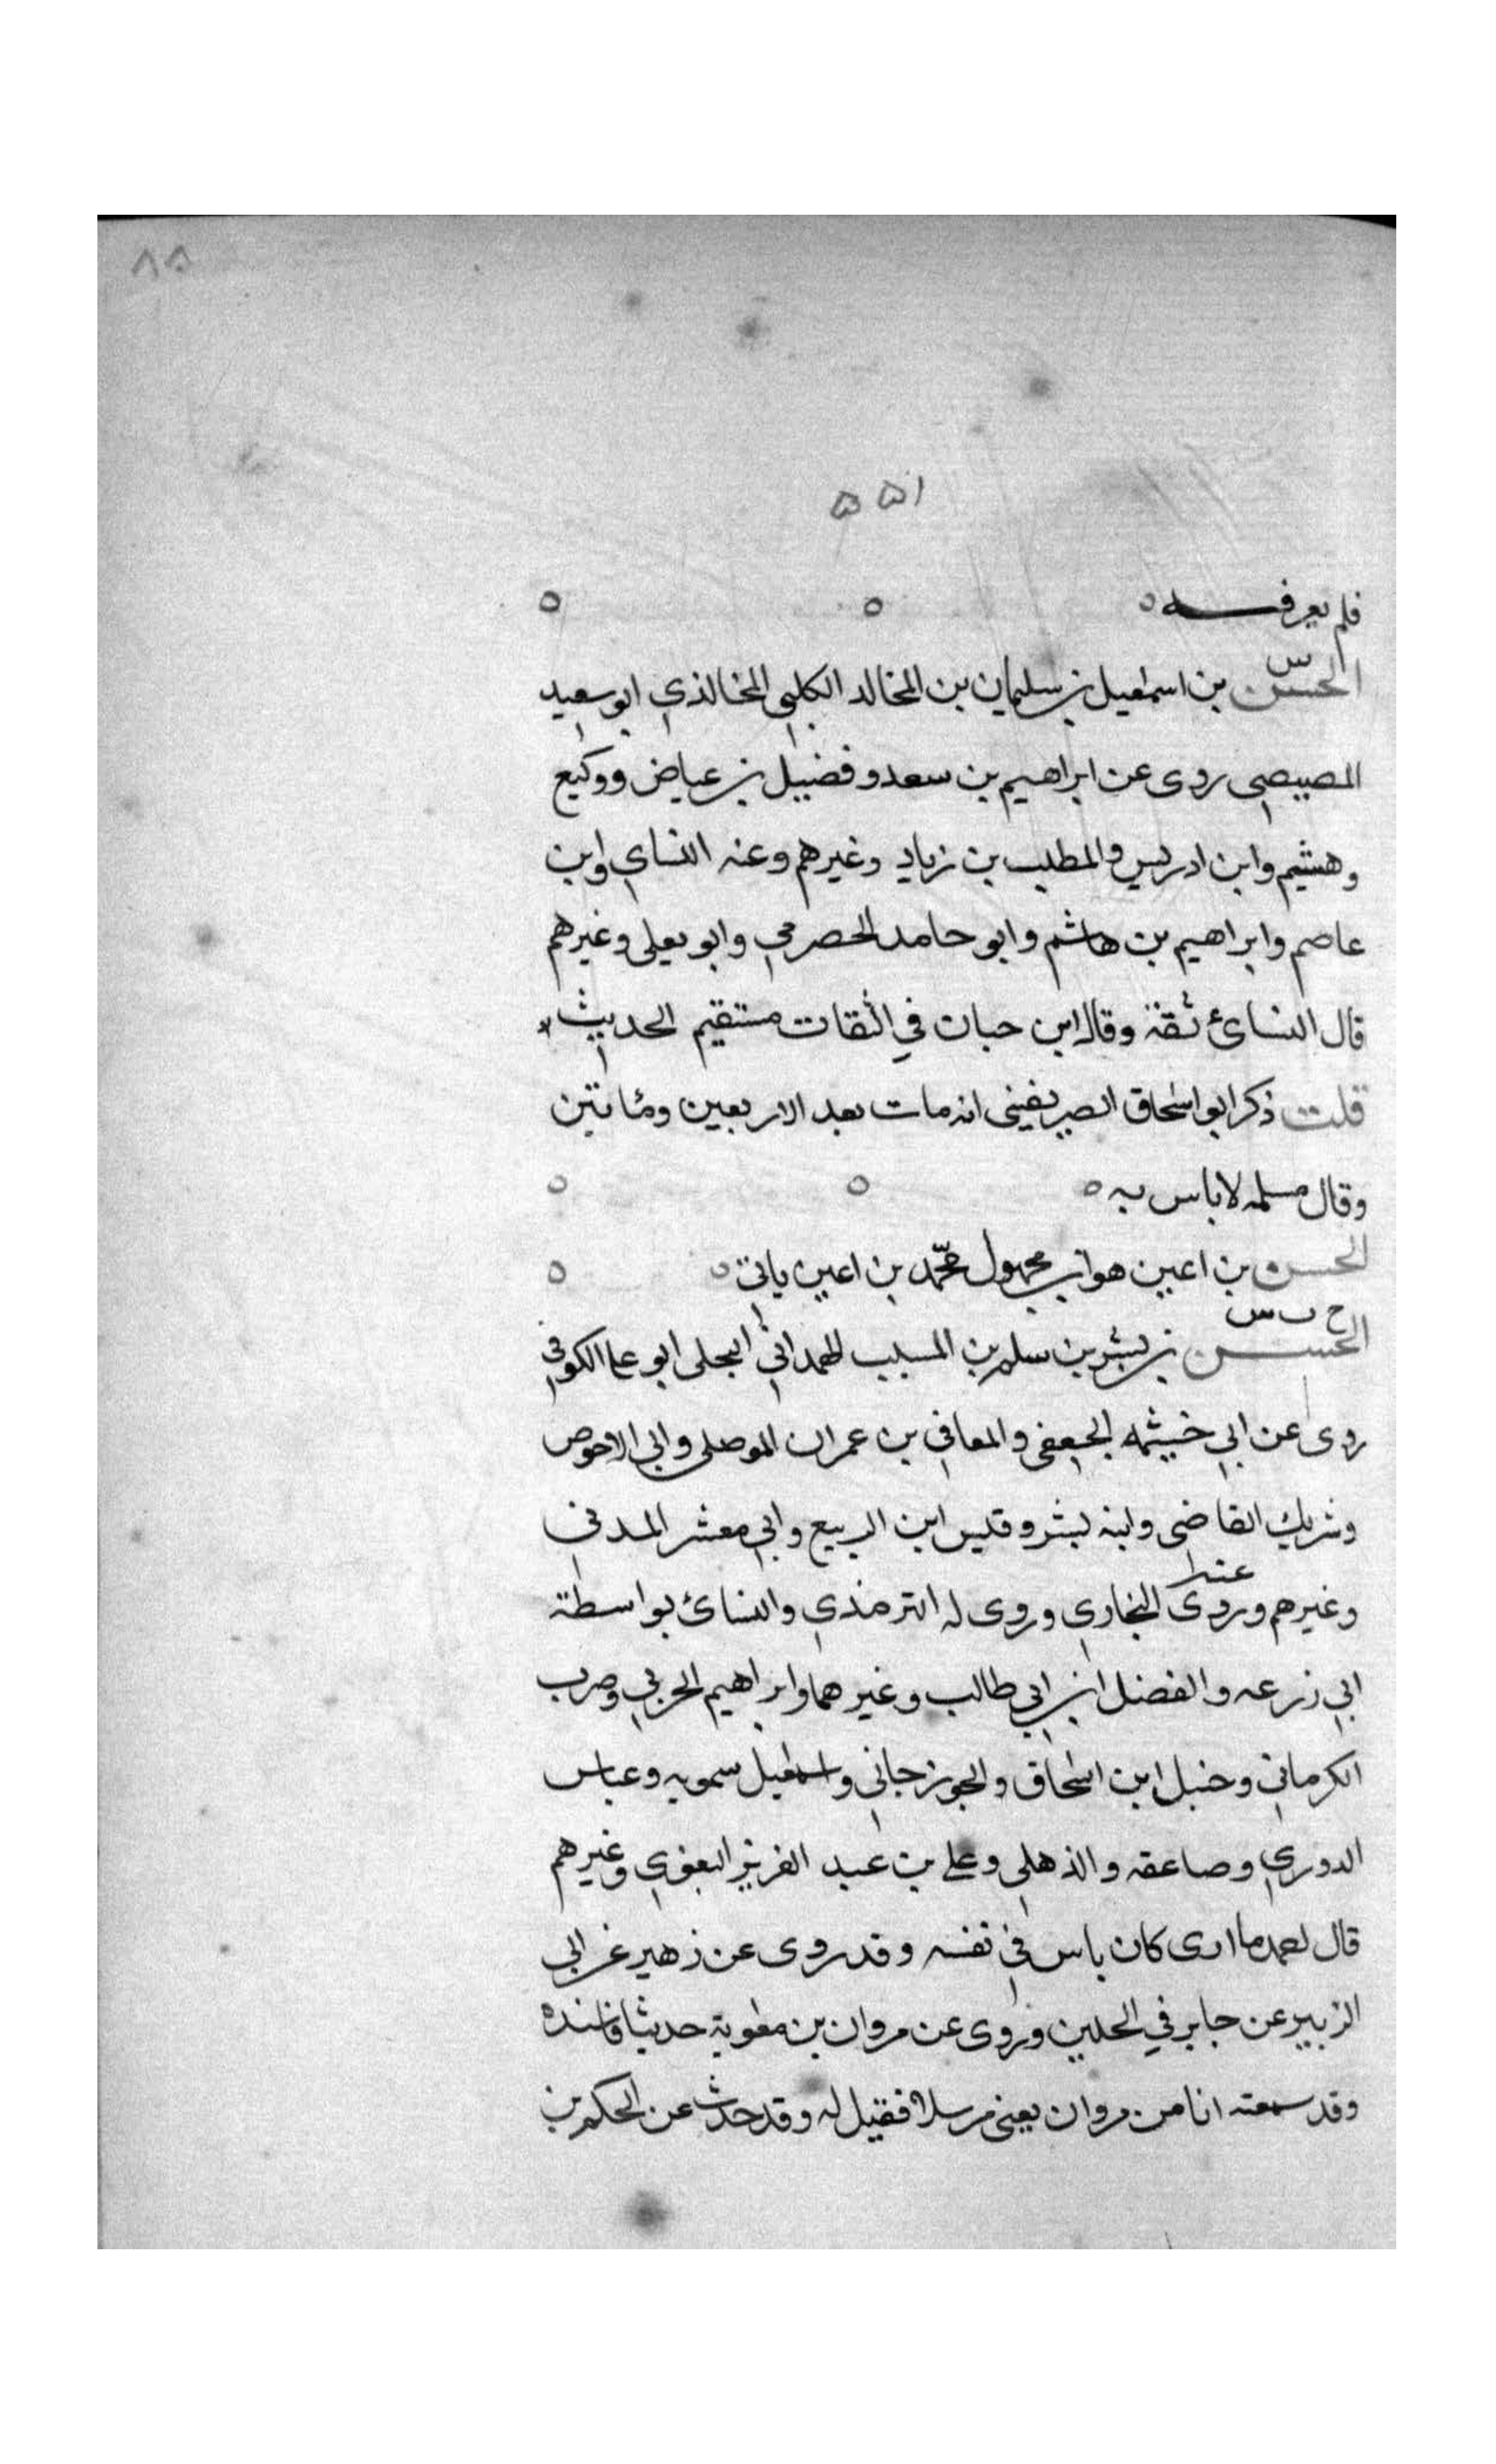 ٨٨
١٥٥
فلم يعرفه ه ه ه
س
الحسن بن اسمعيل بن سليمان بن المخالد الكلبى المخالذي ابو سعيد
المصيصى روى عن ابراهيم بن سعد وفضيل بن عياض ووكيع
وهشيم وابن ادريس والمطلب بن زياد وغيرهم وعنه النساي وابن
عاصم وابراهيم بن هاشم وابو حامد الحضرمي وابو يعلى وغيرهم
قال النسائ ثقة وقال ابن حبان في الثقات مستقيم الحديث
قلت ذكر ابو اسحاق الصريفينى انه مات بعد الاربعين ومائتين
وقال مسلمه لا باس به ه ه ه
الحسن بن اعين هو ابن محمد بن اعين ياتى ه ه
خ ت س
الحسن بن بشر بن سلم بن المسيب الهمداني البجلى ابو على الكوفي
روى عن ابي خيثمه الجعفى والمعافي بن عمران الموصلى وابى الاحوص
وشريك القاضى وابنه بشر وقيس ابن الربيع وابي معشر المدنى
عنه
وغيرهم وروى البخاري وروى له الترمذي والنسائ بواسطة
ابي زرعه والفضل ابن ابي طالب وغيرهما وابراهيم الحربي وحرب
الكرماني وحنبل ابن اسحاق والجوزجاني واسمعيل سمويه وعباس
الدوري وصاعقه والذهلى وعلى بن عبد العزيز البغوي وغيرهم
قال احمد ما ارى كان باس في نفسه وقد روى عن زهير عن ابى
الزبير عن جابر في الجنين وروى عن مروان بن معوية حديثا فاسنده
وقد سمعته انا من مروان يعنى مرسلا فقيل له وقد حدث عن الحكم بن